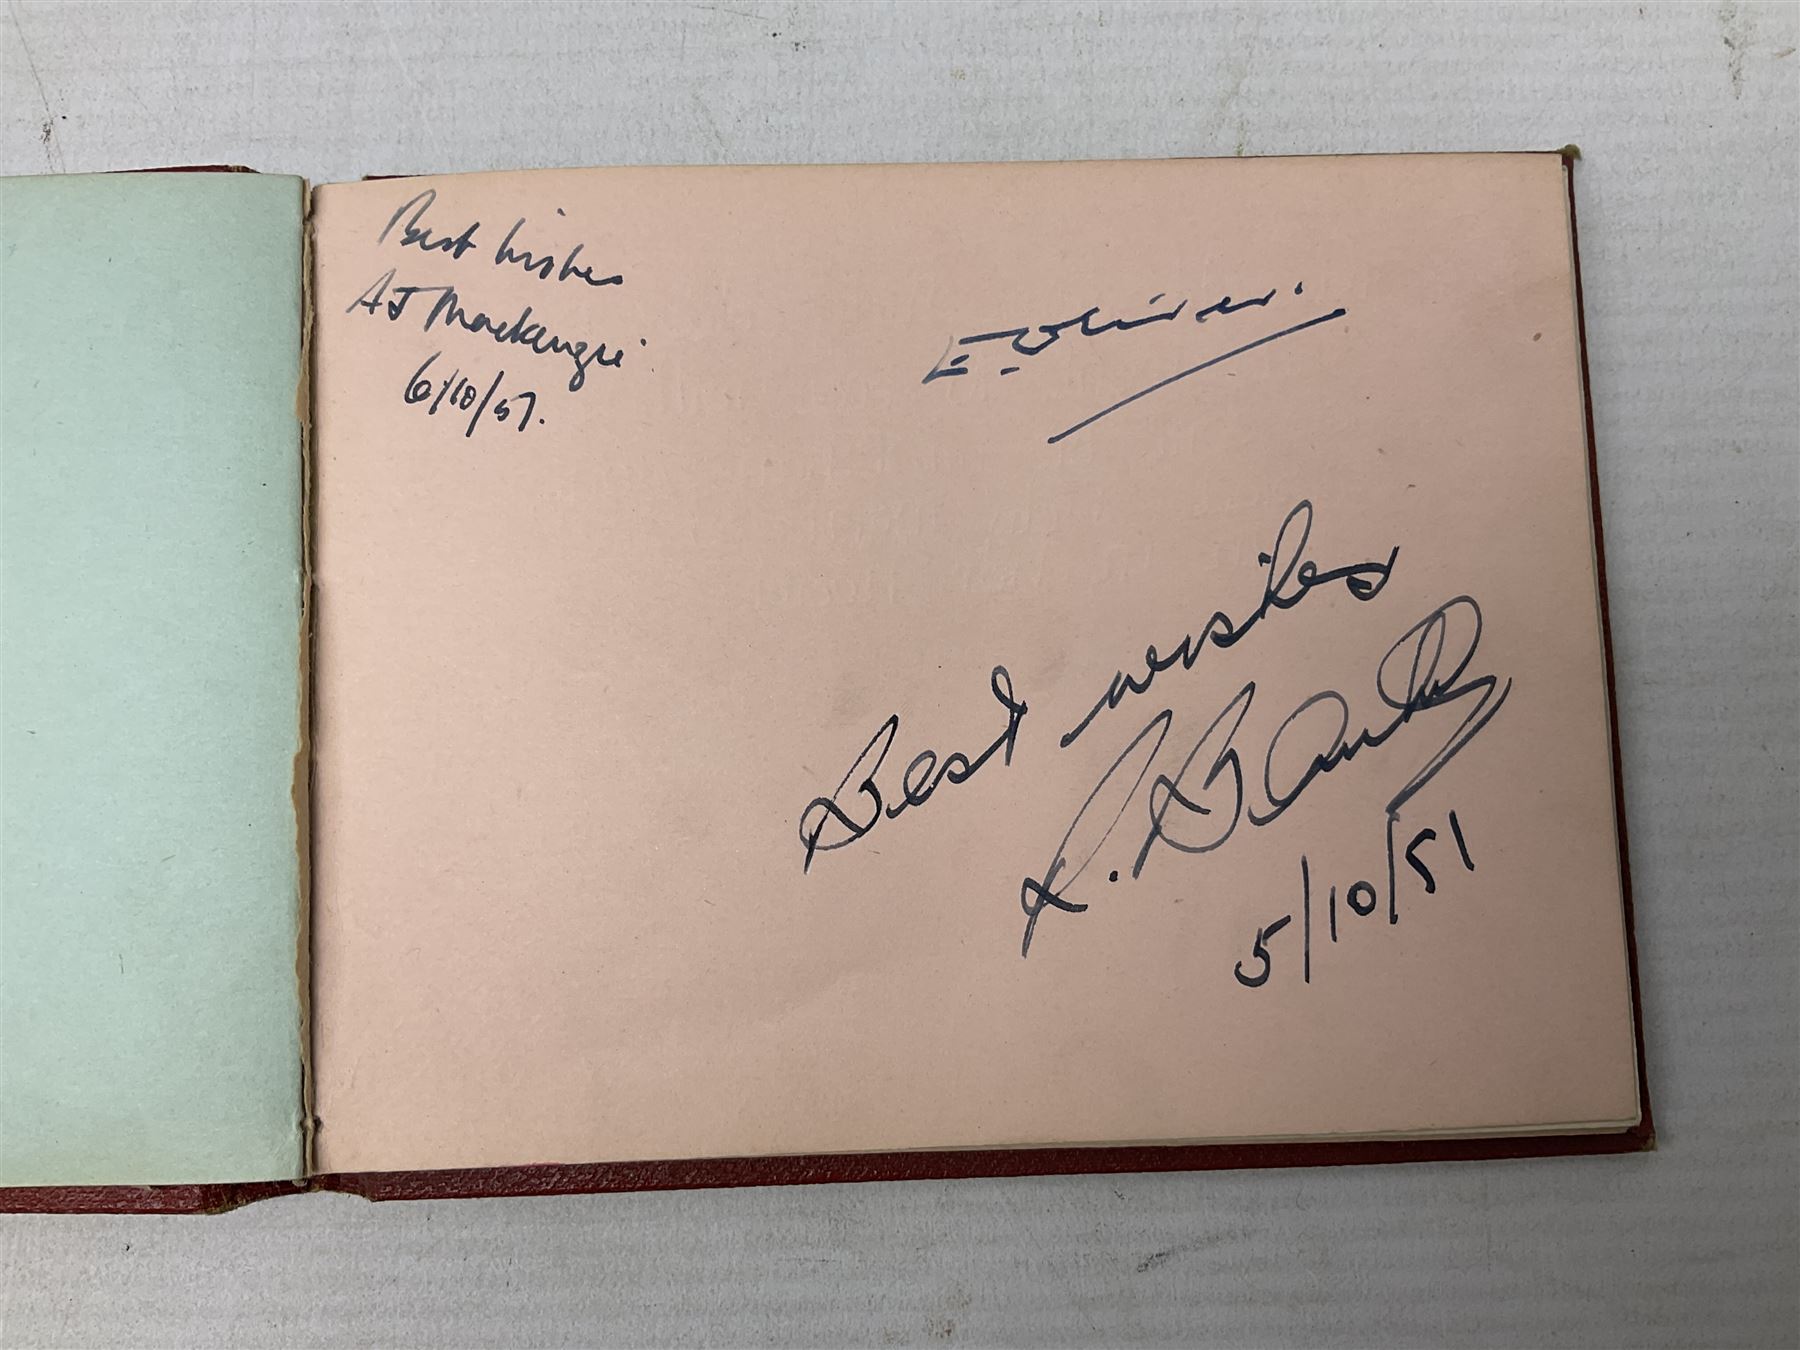 Best wishes
AJ Mackenzie
6/10/51.
E. Oliver.
Best wishes
5/10/51